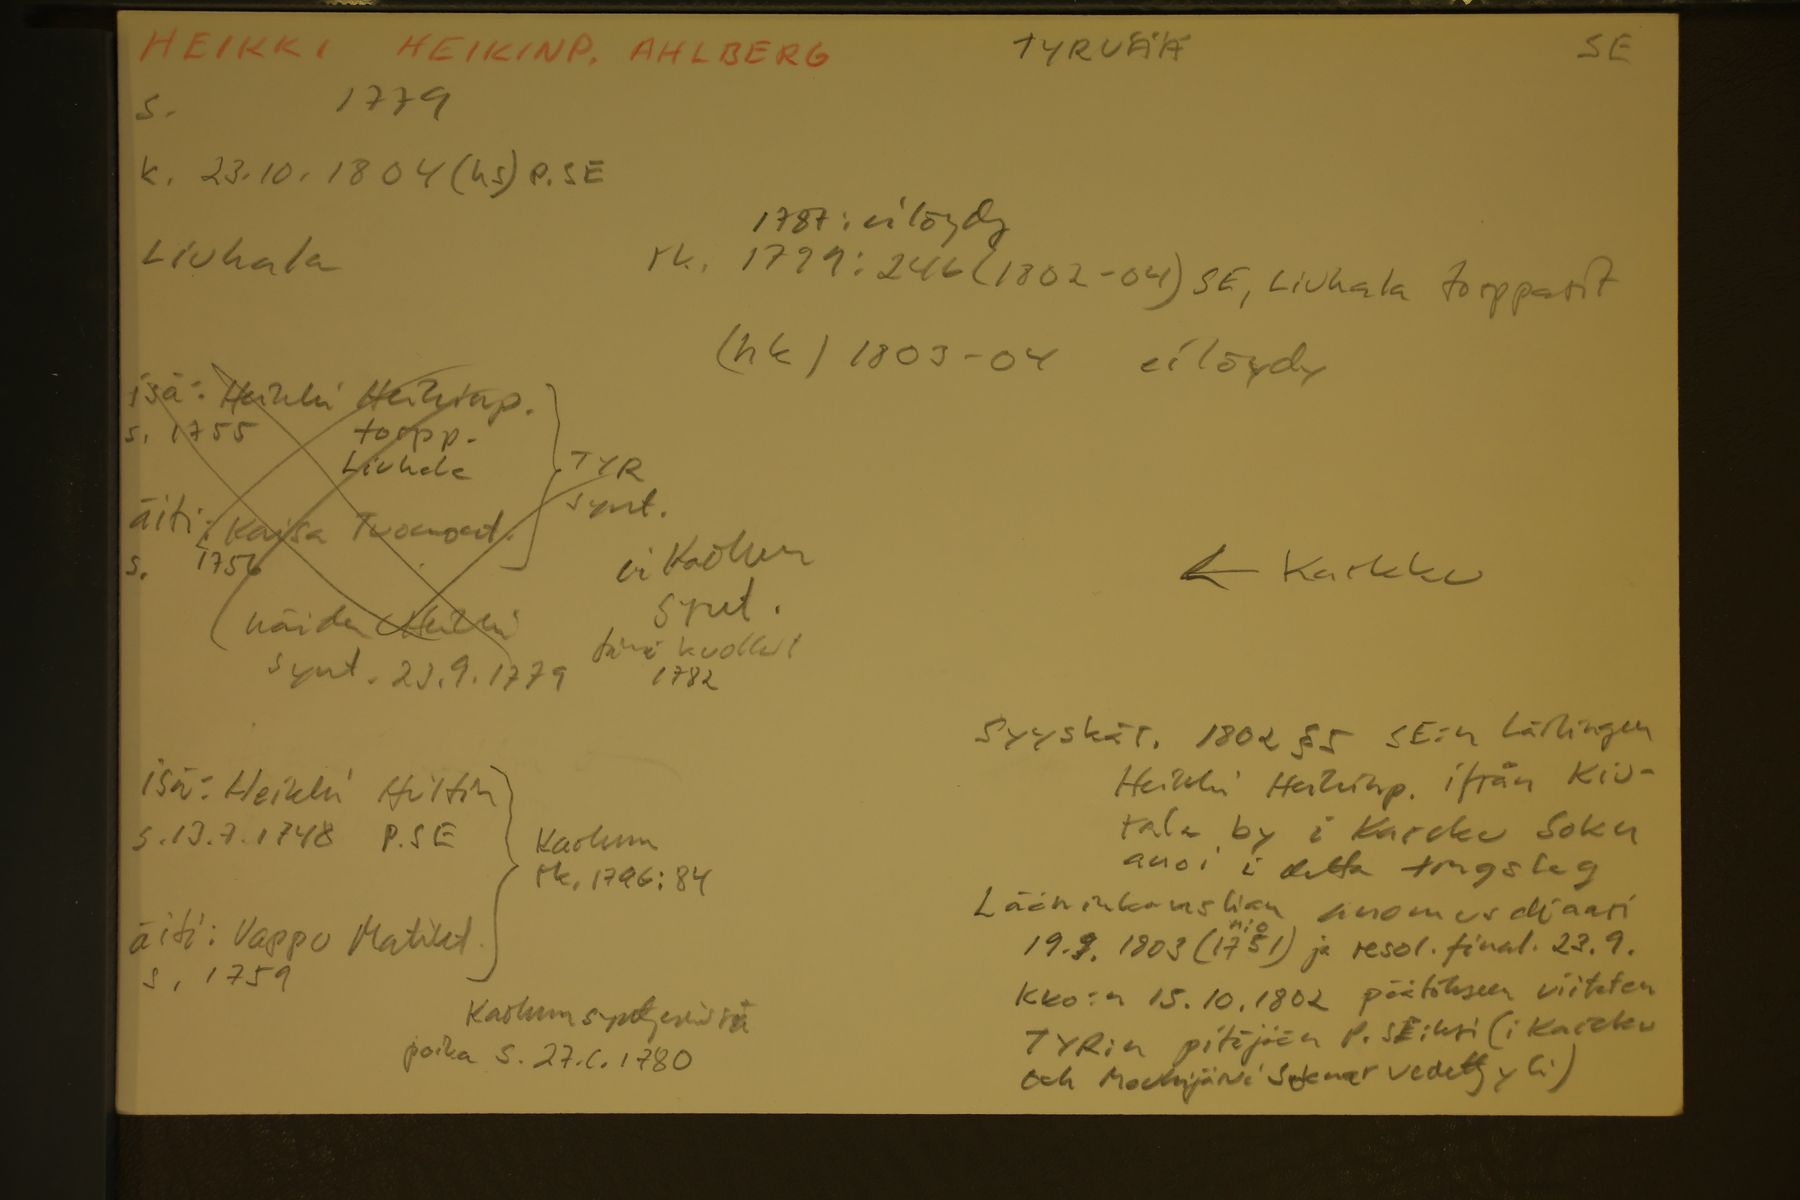 HEIKKI HEIKINP. AHLBERG TYRVÄÄ SE
s. 1779
k. 23.10.1804 (hs) P.SE
1787: ei löydy
Liuhala rk. 1799: 246 (1802-04) SE, Liuhala torpparit
(hk) 1803-04 ei löydy
isä: Heikki Heikinp.
s. 1755 torpp.
Liuhala
TYR
synt.
äiti: Kaisa Tuomaant.
s. 1756
ei Karkun
synt.
← Karkku
(näiden Heikki
synt. 23.9.1779
tämä kuollut
1782
isä: Heikki Hiltin
s. 13.7.1748 P.SE
Karkun
rk. 1796: 84
äiti: Vappu Matint.
s. 1759
Karkun syntyneissä
poika s. 27.1.1780
Syyskär. 1802 §5 SE:n Lärlingen
Heikki Heikinp. ifrån Kiu-
tala by i Karcku Sokn
anoi i detta tingslag
Lääninkanslian anomusdiaari
nio
19.9. 1803 (1751) ja resol. final. 23.9.
KKO:n 15.10.1802 päätökseen viitaten
TYR:n pitäjään P.SEiksi (i Karcku
och Mouhijärvi Soknar vedetty yli)